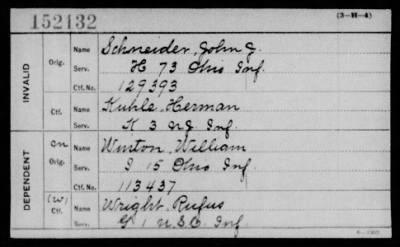 152132
(3-H-4)
INVALID
Orig. Name Schneider, John J.
Serv. H 73 Ohio Inf.
Ctf. No. 129393
Ctf. Name Kuhls, Herman
Serv. K 3 NJ Inf.
DEPENDENT
on Orig. Name Winton, William
Serv. I 15 Ohio Inf.
Ctf. No. 113437
(W) Ctf. Name Wright, Rufus
Serv. G 1 U.S.C. Inf.